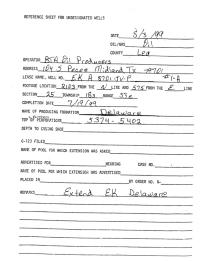 REFERENCE SHEET FOR UNDESIGNATED WELLS
DATE 8/3/99
OIL/GAS Oil
COUNTY Lea
OPERATOR RTA Oil Producers
ADDRESS 104 S Pecos Midland Tx 79701
LEASE NAME, WELL NO. EK A 8701 JV-P #1-A
FOOTAGE LOCATION: 2103 FROM THE N LINE AND 575 FROM THE E LINE
SECTION 25 TOWNSHIP 18s RANGE 33e
COMPLETION DATE 7/9/99
NAME OF PRODUCING FORMATION Delaware
TOP OF PERFORATIONS 5394 - 5402
DEPTH TO CASING SHOE
C-123 FILED
NAME OF POOL FOR WHICH EXTENSION WAS ASKED
ADVERTISED FOR HEARING CASE NO.
NAME OF POOL FOR WHICH EXTENSION WAS ADVERTISED
PLACED IN BY ORDER NO. R-
REMARKS Extend EK Delaware